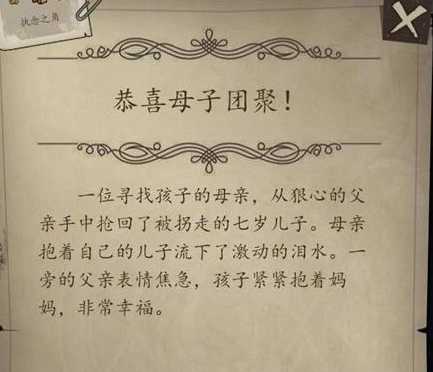 执念之角
恭喜母子团聚！
一位寻找孩子的母亲，从狠心的父
亲手中抢回了被拐走的七岁儿子。母亲
抱着自己的儿子流下了激动的泪水。一
旁的父亲表情焦急，孩子紧紧抱着妈
妈，非常幸福。